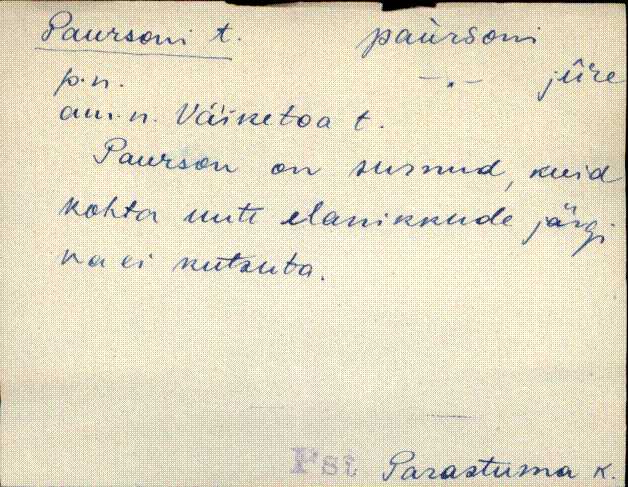 Paursoni t. paùrsoni
p.n. -"- jũre
am.n. Väiketoa t.
Paurson on surnud, kuid
kohta uute elanikkude järgi
ka ei kutsuta.
Pst Parastuma k.